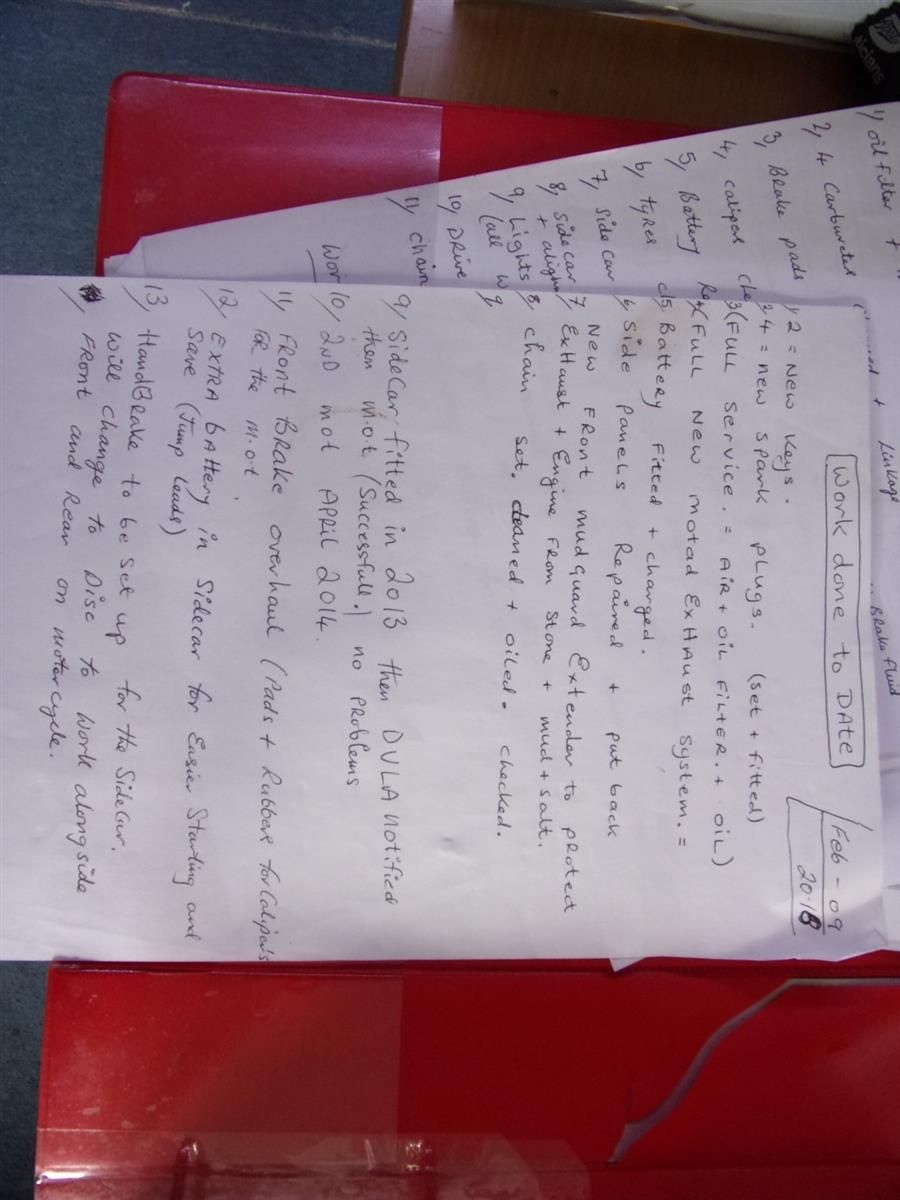 Work done to DAtE
Feb - 09
2018
1, 2 = New Keys.
2, 4 = new spark plugs. (set + fitted)
3, (FULL Service. = AiR + OiL FiLTER. + OiL)
4, (FULL New motad ExHAust system. =
5, Battery Fitted + changed.
6, Side Panels Repaired + put back
New Front mudguard Extender to protect
7, ExHaust + Engine From Stone + mud + salt.
8, Chain set. cleaned + oiled. checked.
9, SideCar fitted in 2013 then DVLA notified
then M.O.t (Successfull.) no problems
10, 2ND mot APRIL 2014.
11, FRONT BRAKE overhaul (Pads + Rubbers for Calipers
FOR the M.O.t.
12, EXTRA bAttery in Sidecar for Easier Starting and
Save (Jump leads)
13, HandBrake to be Set up for the Sidecar.
will change to Disc to work alongside
Front and Rear on motorcycle.
1, Oil Filter +
2, 4 Carburetor
3, Brake pads
4, caliper cle
5, Battery Re
6, tyres
7, Side Car
8, Sidecar
+ align
9, Lights
(all w
10, DRive
11, chain
Wor
+ Linkage
Brake Fluid